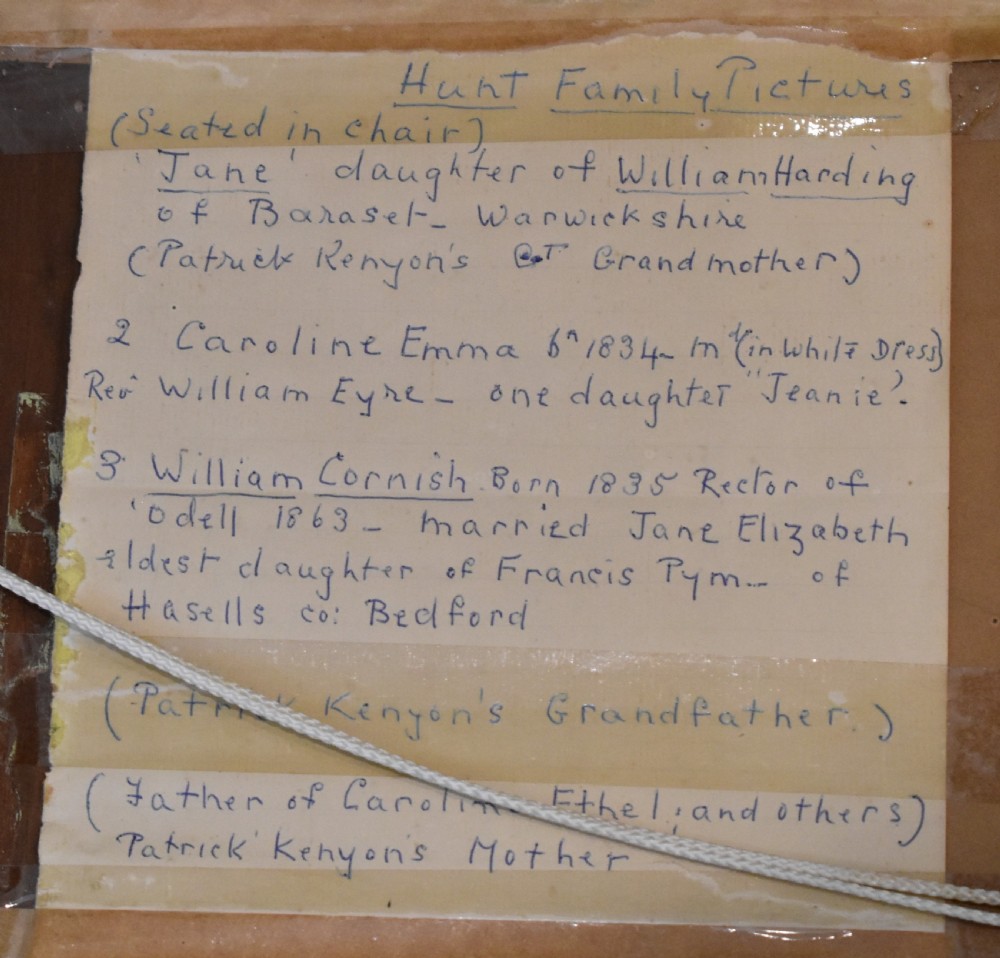 Hunt Family Pictures
(Seated in chair)
'Jane' daughter of William Harding
of Baraset - Warwickshire
(Patrick Kenyon's GT Grandmother)
2 Caroline Emma bn 1834 - md (in white Dress)
Rev William Eyre - one daughter "Jeanie".
3 William Cornish Born 1835 Rector of
'Odell 1863 - married Jane Elizabeth
eldest daughter of Francis Pym - of
Hasells co: Bedford
(Patrick Kenyon's Grandfather.)
(Father of Caroline Ethel; and others)
Patrick Kenyon's Mother